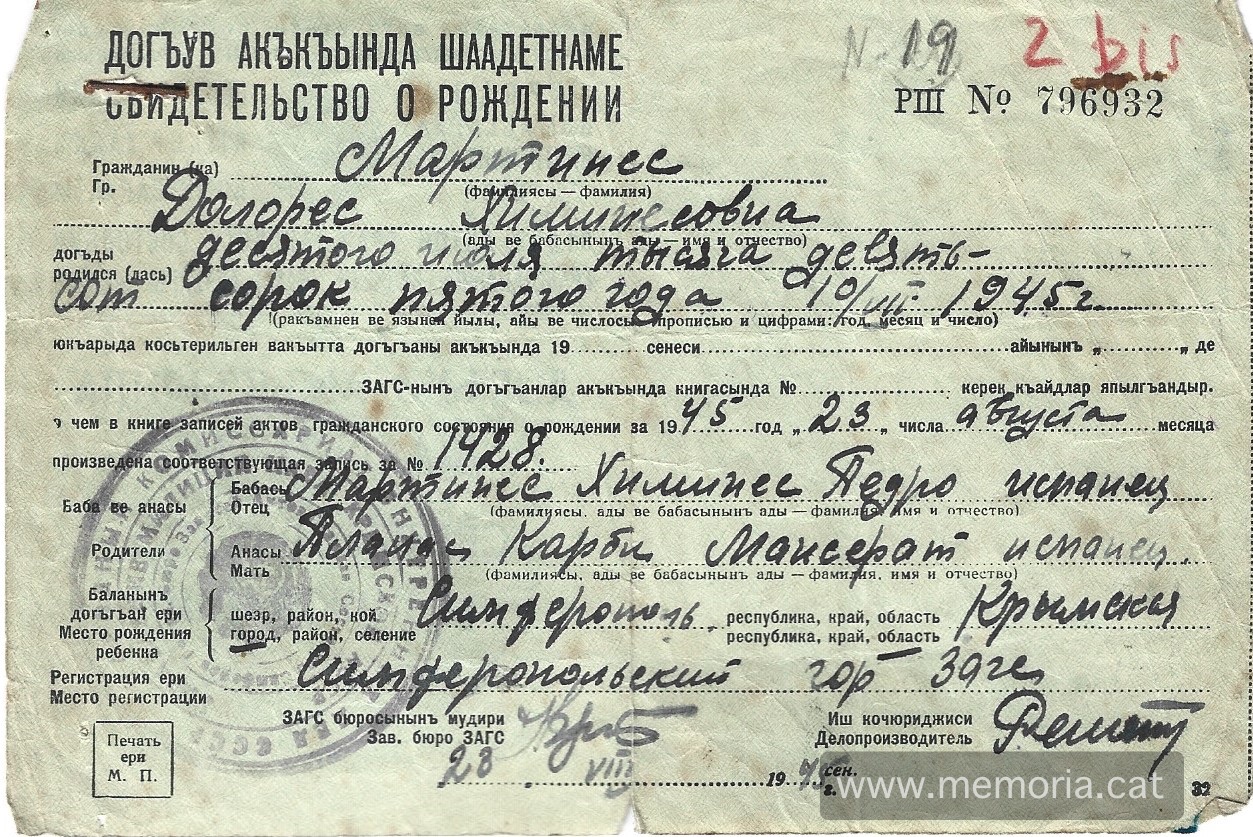 ДОГЪУВ АКЪКЪЫНДА ШААДЕТНАМЕ
N. 19 2 bis
СВИДЕТЕЛЬСТВО О РОЖДЕНИИ
РШ № 796932
Гражданин (ка) Мартинес
Гр. (фамилиясы — фамилия)
Долорес Химинесовна
(ады ве бабасынынъ ады — имя и отчество)
догъды
родился (лась) десятого июля тысяча девять-
сот сорок пятого года 10/VII 1945г.
(ракъамнен ве язынен йылы, айы ве числосы — прописью и цифрами: год, месяц и число)
юкъарыда косьтерильген вакъытта догъгъаны акъкъында 19 сенеси айынынъ „ „ де
ЗАГС-нынъ догъгъанлар акъкъында книгасында № керек къайдлар япылгъандыр.
о чем в книге записей актов гражданского состояния о рождении за 1945 год „23„ числа августа месяца
произведена соответствующая запись за № 1428.
Баба ве анасы
Родители
Бабасы
Отец Мартинес Химинес Педро испанец
(фамилиясы, ады ве бабасынынъ ады — фамилия, имя и отчество)
Анасы
Мать Планас Карби Мансерат испанец.
(фамилиясы, ады ве бабасынынъ ады — фамилия, имя и отчество)
Баланынъ
догъгъан ери
Место рождения
ребенка
шеэр, район, кой
город, район, селение Симферополь
республика, край, область
республика, край, область Крымская
Регистрация ери
Место регистрации Симферопольский гор Загс
ЗАГС бюросынынъ мудири
Зав. бюро ЗАГС
Иш кочюриджиси
Делопроизводитель
23 VIII 1945 сен.
г.
Печать
ери
М. П.
32
www.memoria.cat